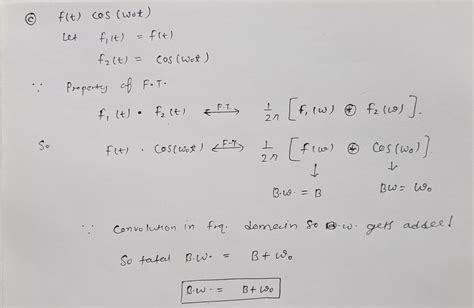 ⓒ f(t) cos(ω₀t)
Let f₁(t) = f(t)
f₂(t) = cos(ω₀t)
∵ Property of F.T.
f₁(t) • f₂(t) ⟷F.T. 1/2π [f₁(ω) ⊛ f₂(ω)].
So f(t) · cos(ω₀t) ⟷F.T 1/2π [f(ω) ⊛ cos(ω₀)].
↓ ↓
B.W. = B BW = ω₀
∵ Convolution in frq. domain so B.W. gets added!
So total B.W. = B + ω₀
B.W. = B + ω₀